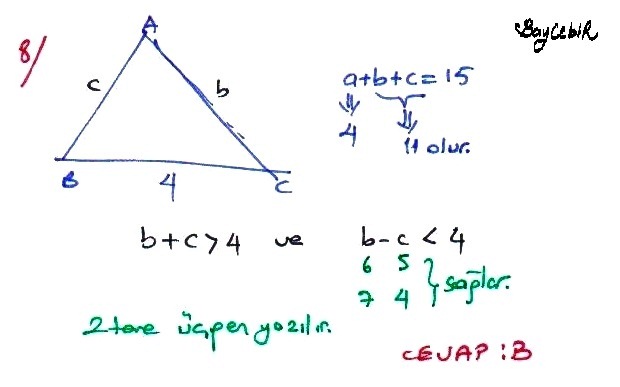 BayCebir
8/
A
c
b
B
4
C
a+b+c=15
4
11 olur.
b+c>4 ve b-c<4
6 5
7 4
sağlar.
2 tane üçgen yazılır.
CEVAP:B